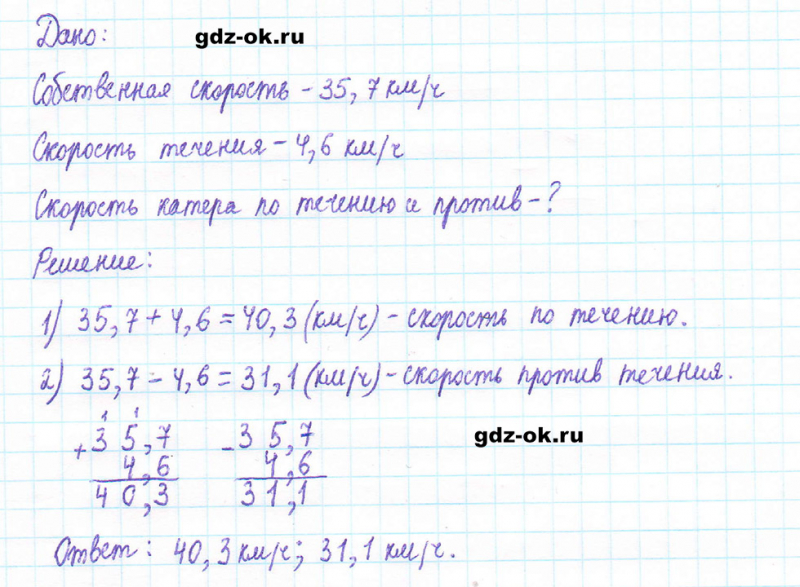 Дано: gdz-ok.ru
Собственная скорость – 35,7 км/ч
Скорость течения – 4,6 км/ч
Скорость катера по течению и против – ?
Решение:
1) 35,7 + 4,6 = 40,3 (км/ч) – скорость по течению.
2) 35,7 – 4,6 = 31,1 (км/ч) – скорость против течения.
1 1
+ 35,7 – 35,7 gdz-ok.ru
4,6 4,6
40,3 31,1
Ответ: 40,3 км/ч; 31,1 км/ч.